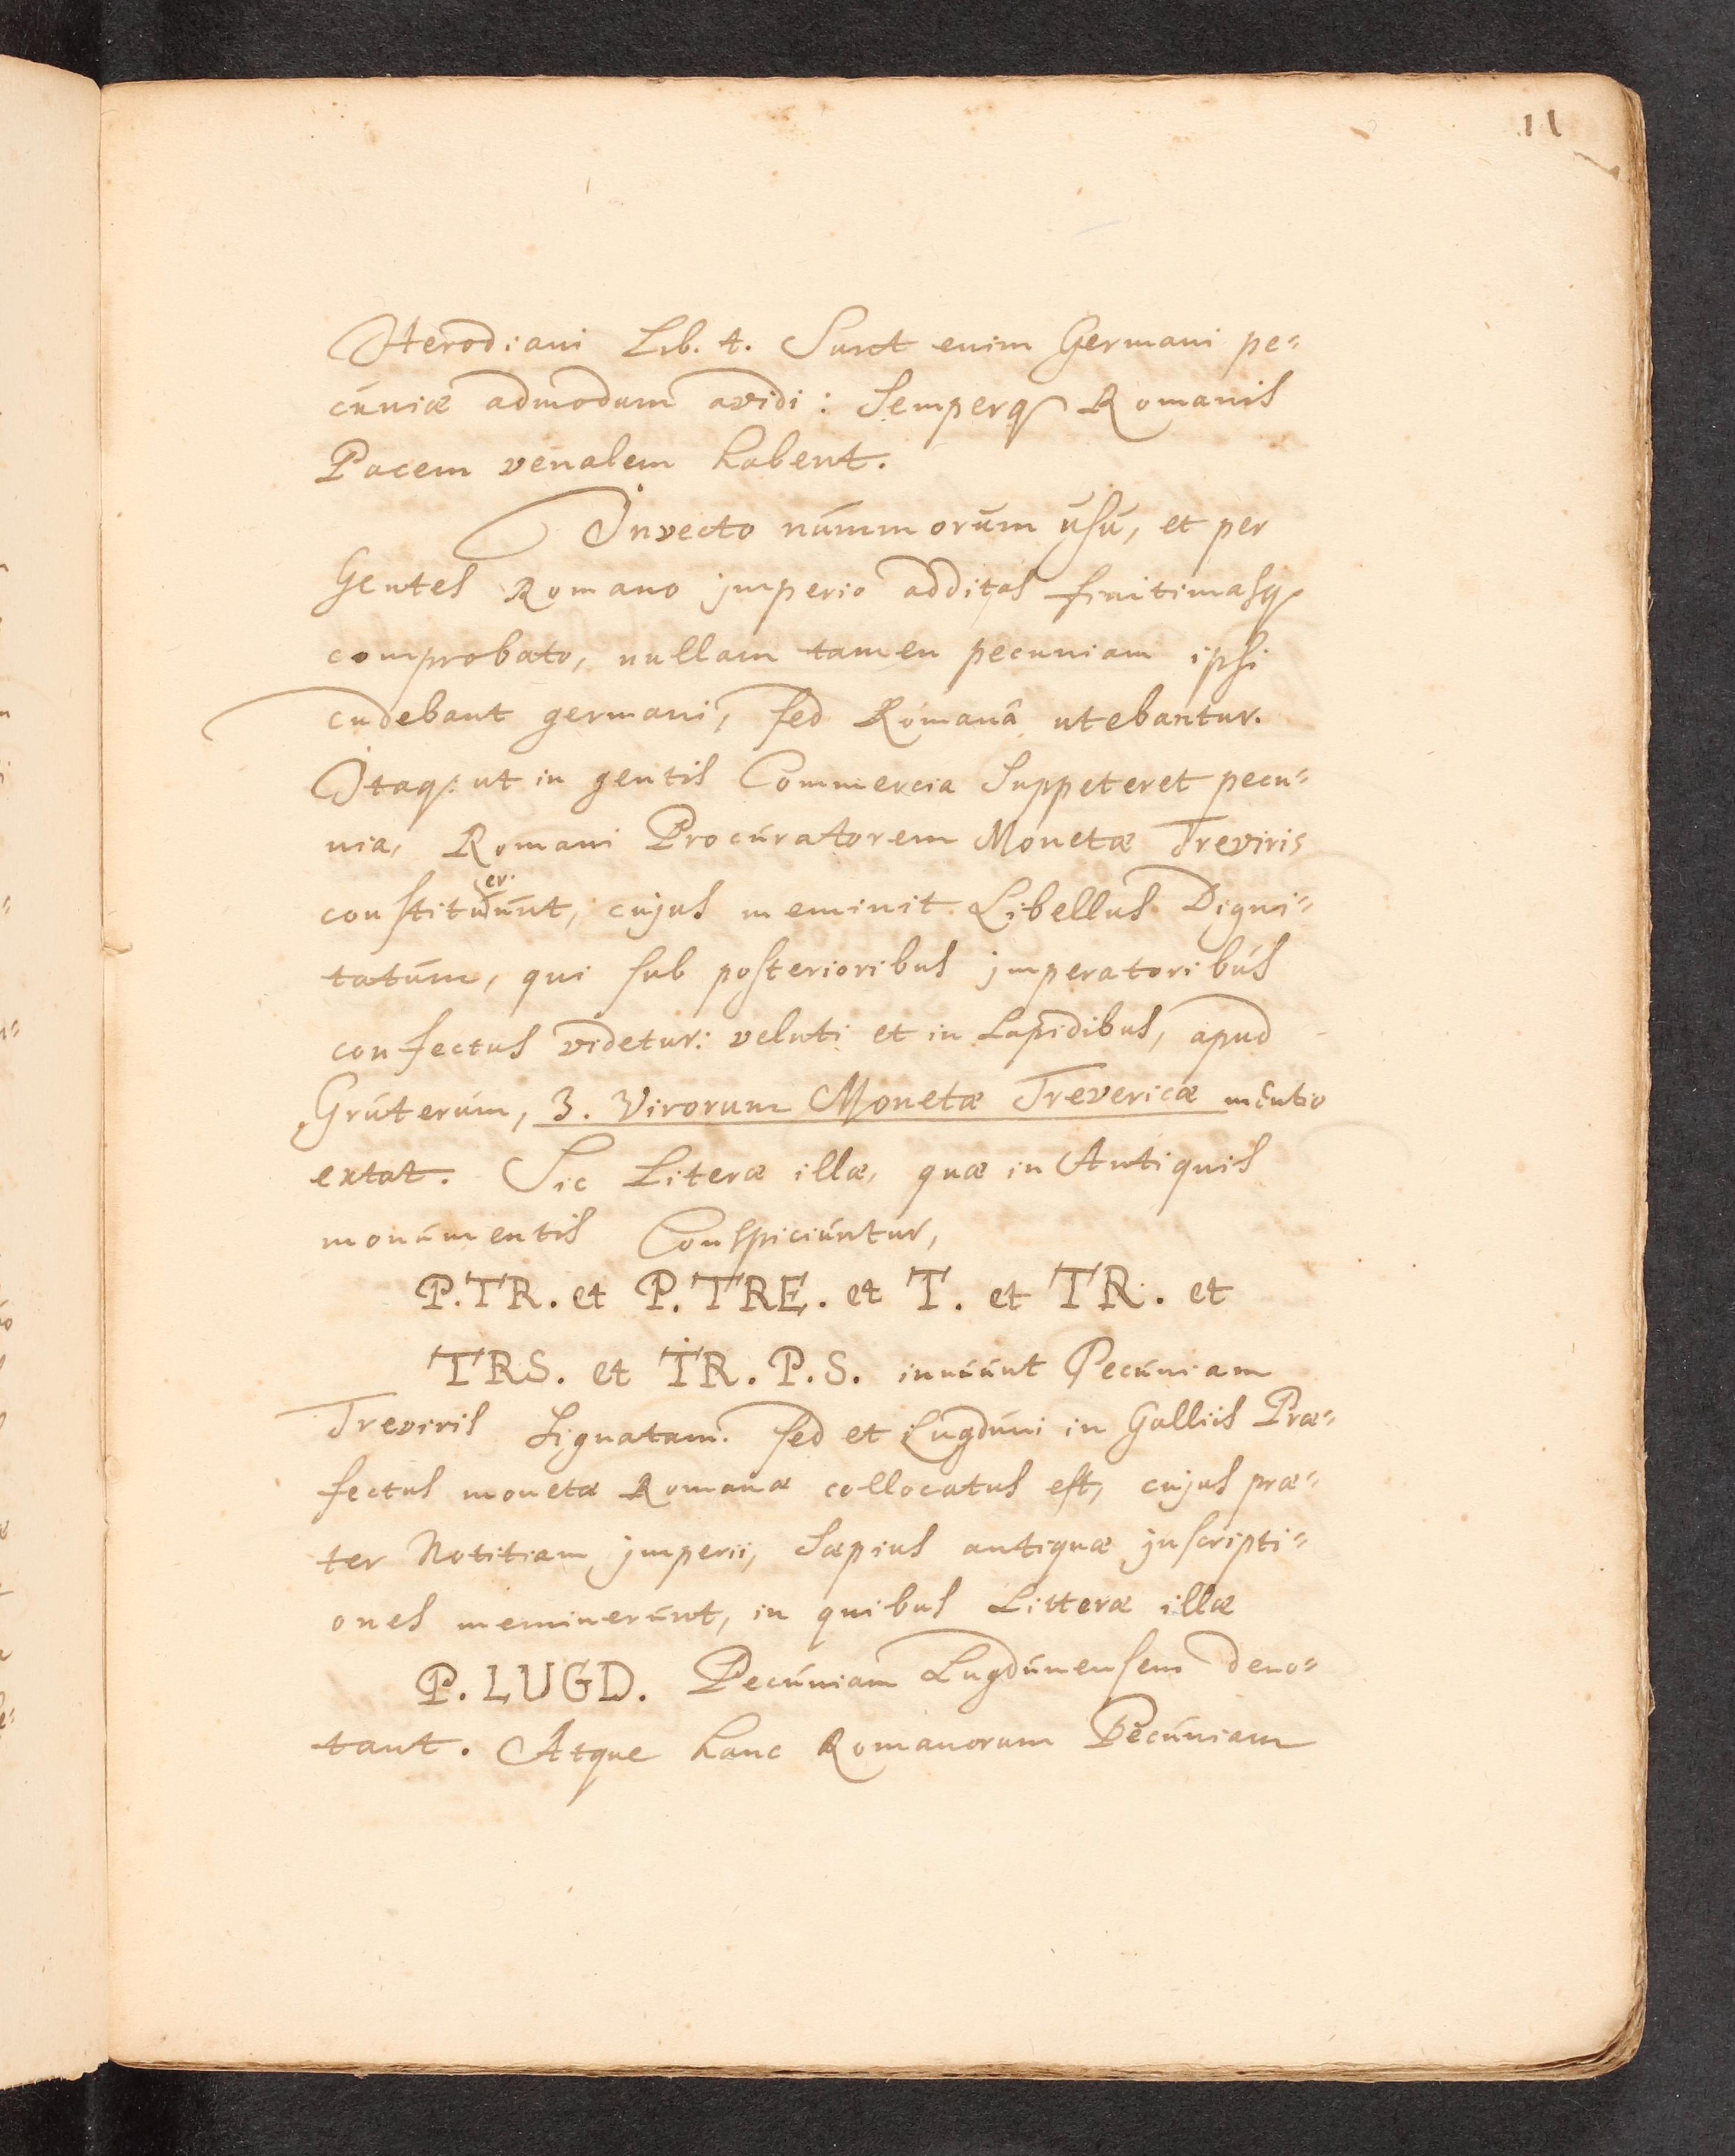 11
Herodiani Lib. 4. Sunt enim Germani pe=
cuniæ admodum avidi: Semperq Romanis
Pacem venalem habent.
Invecto nummorum usu, et per
Gentes Romano imperio additas finitimasq
comprobato, nullam tamen pecuniam ipsi
cudebant germani, sed Romanâ utebantur.
Itaq: ut in gentis Commercia Suppeteret pecu=
nia, Romani Procuratorem Monetæ Treviris
er.
constituunt, cujus meminit Libellus Digni=
tatum, qui sub posterioribus imperatoribus
confectus videtur: veluti et in Lapidibus, apud
Gruterum, 3. Virorum Monetæ Trevericæ mentio
extat. Sic Literæ illæ, quæ in Antiquis
monumentis Conspiciuntur,
P.TR. et P.TRE. et T. et TR. et
TRS. et TR.P.S. innuunt Pecuniam
Treviris Signatam. sed et Lugduni in Galliis Præ=
fectus monetæ Romanæ collocatus est, cujus præ=
ter Notitiam imperii, Sæpius antiquæ inscripti=
ones meminerunt, in quibus Litteræ illæ
P. LUGD. Pecuniam Lugdunensem deno=
tant. Atque hanc Romanorum Pecuniam